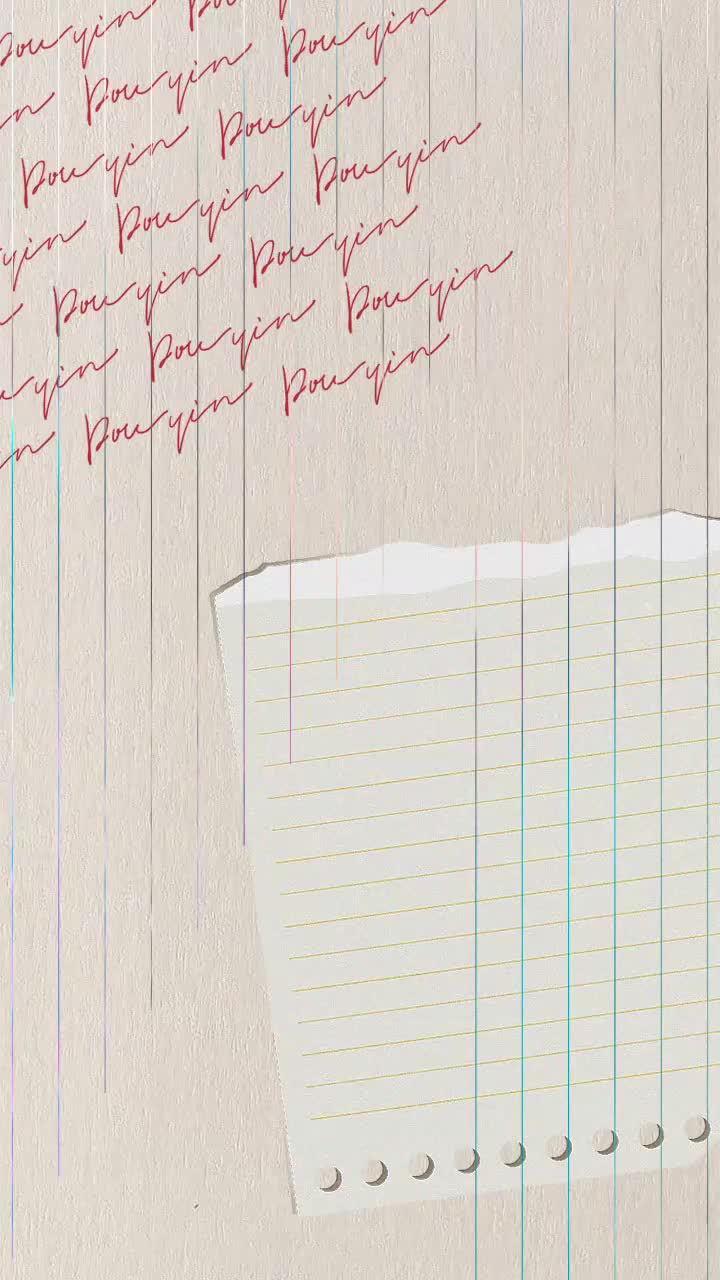 Douyin Douyin
in Douyin Douyin
Douyin Douyin
yin Douyin Douyin
Douyin Douyin
uyin Douyin Douyin
in Douyin Douyin